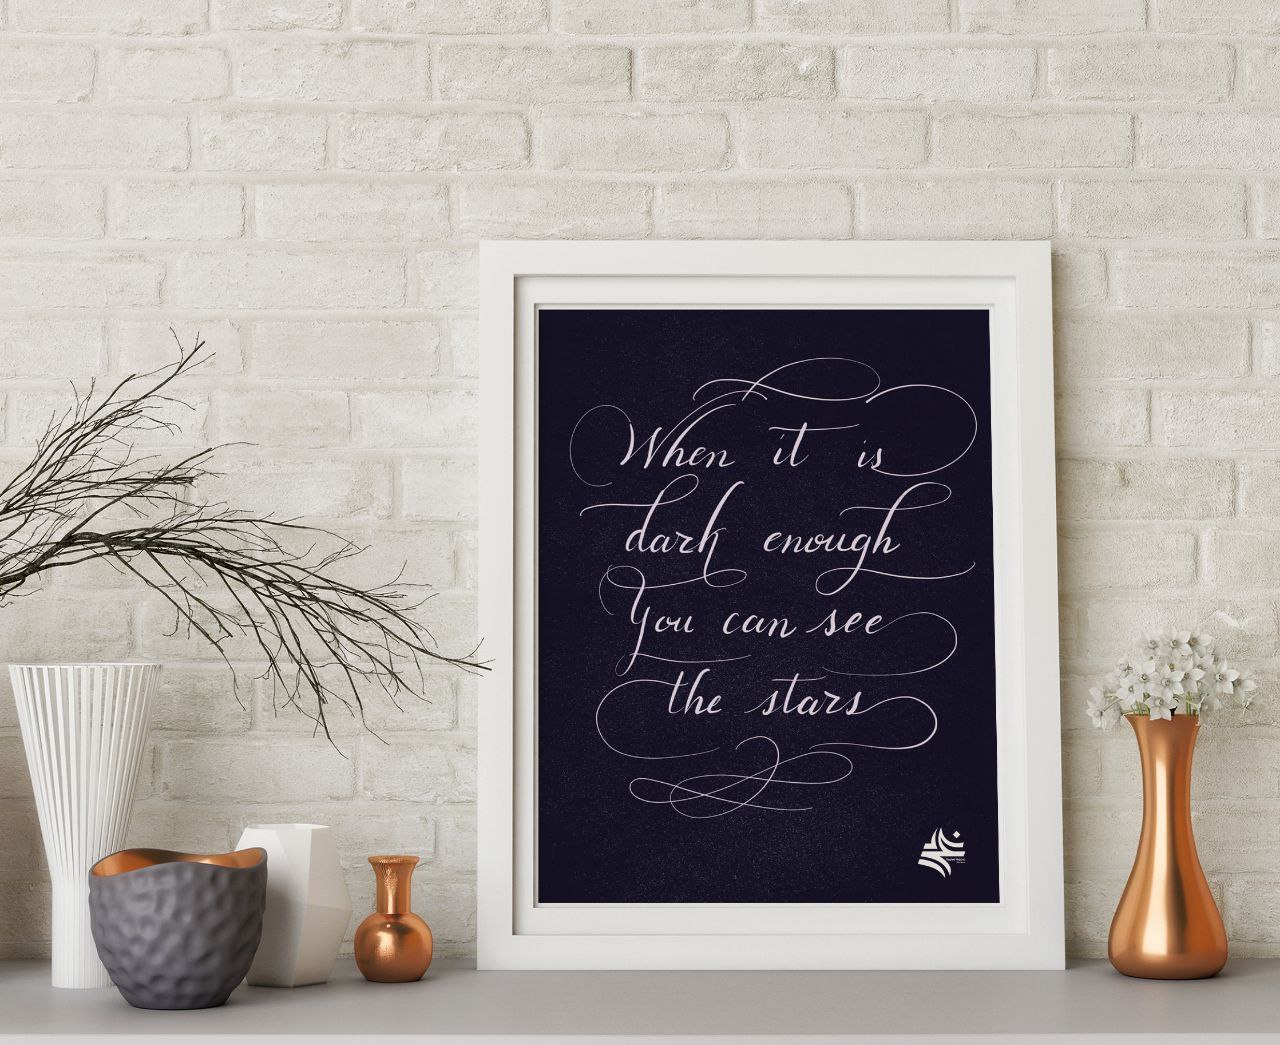 When it is
dark enough
You can see
the stars